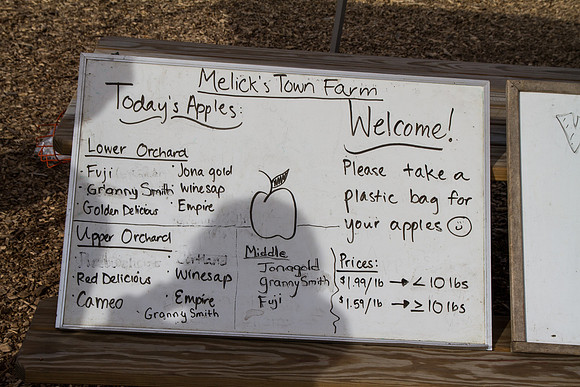 Melick's Town Farm
Today's Apples:
Lower Orchard
· Fuji
· Granny Smith
· Golden Delicious
· Jonagold
· Winesap
· Empire
Upper Orchard
· Red Delicious
· Cameo
· Cortland
· Winesap
· Empire
· Granny Smith
Middle
Jonagold
granny Smith
Fuji
Welcome!
Please take a
plastic bag for
your apples
Prices:
$1.99/lb → < 10 lbs
$1.59/lb → ≥ 10 lbs